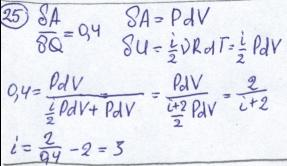 25 δA/δQ = 0,4 δA = PdV
δU = i/2 νRdT = i/2 PdV
0,4 = PdV / (i/2 PdV + PdV) = PdV / ((i+2)/2 PdV) = 2/(i+2)
i = 2/0,4 - 2 = 3